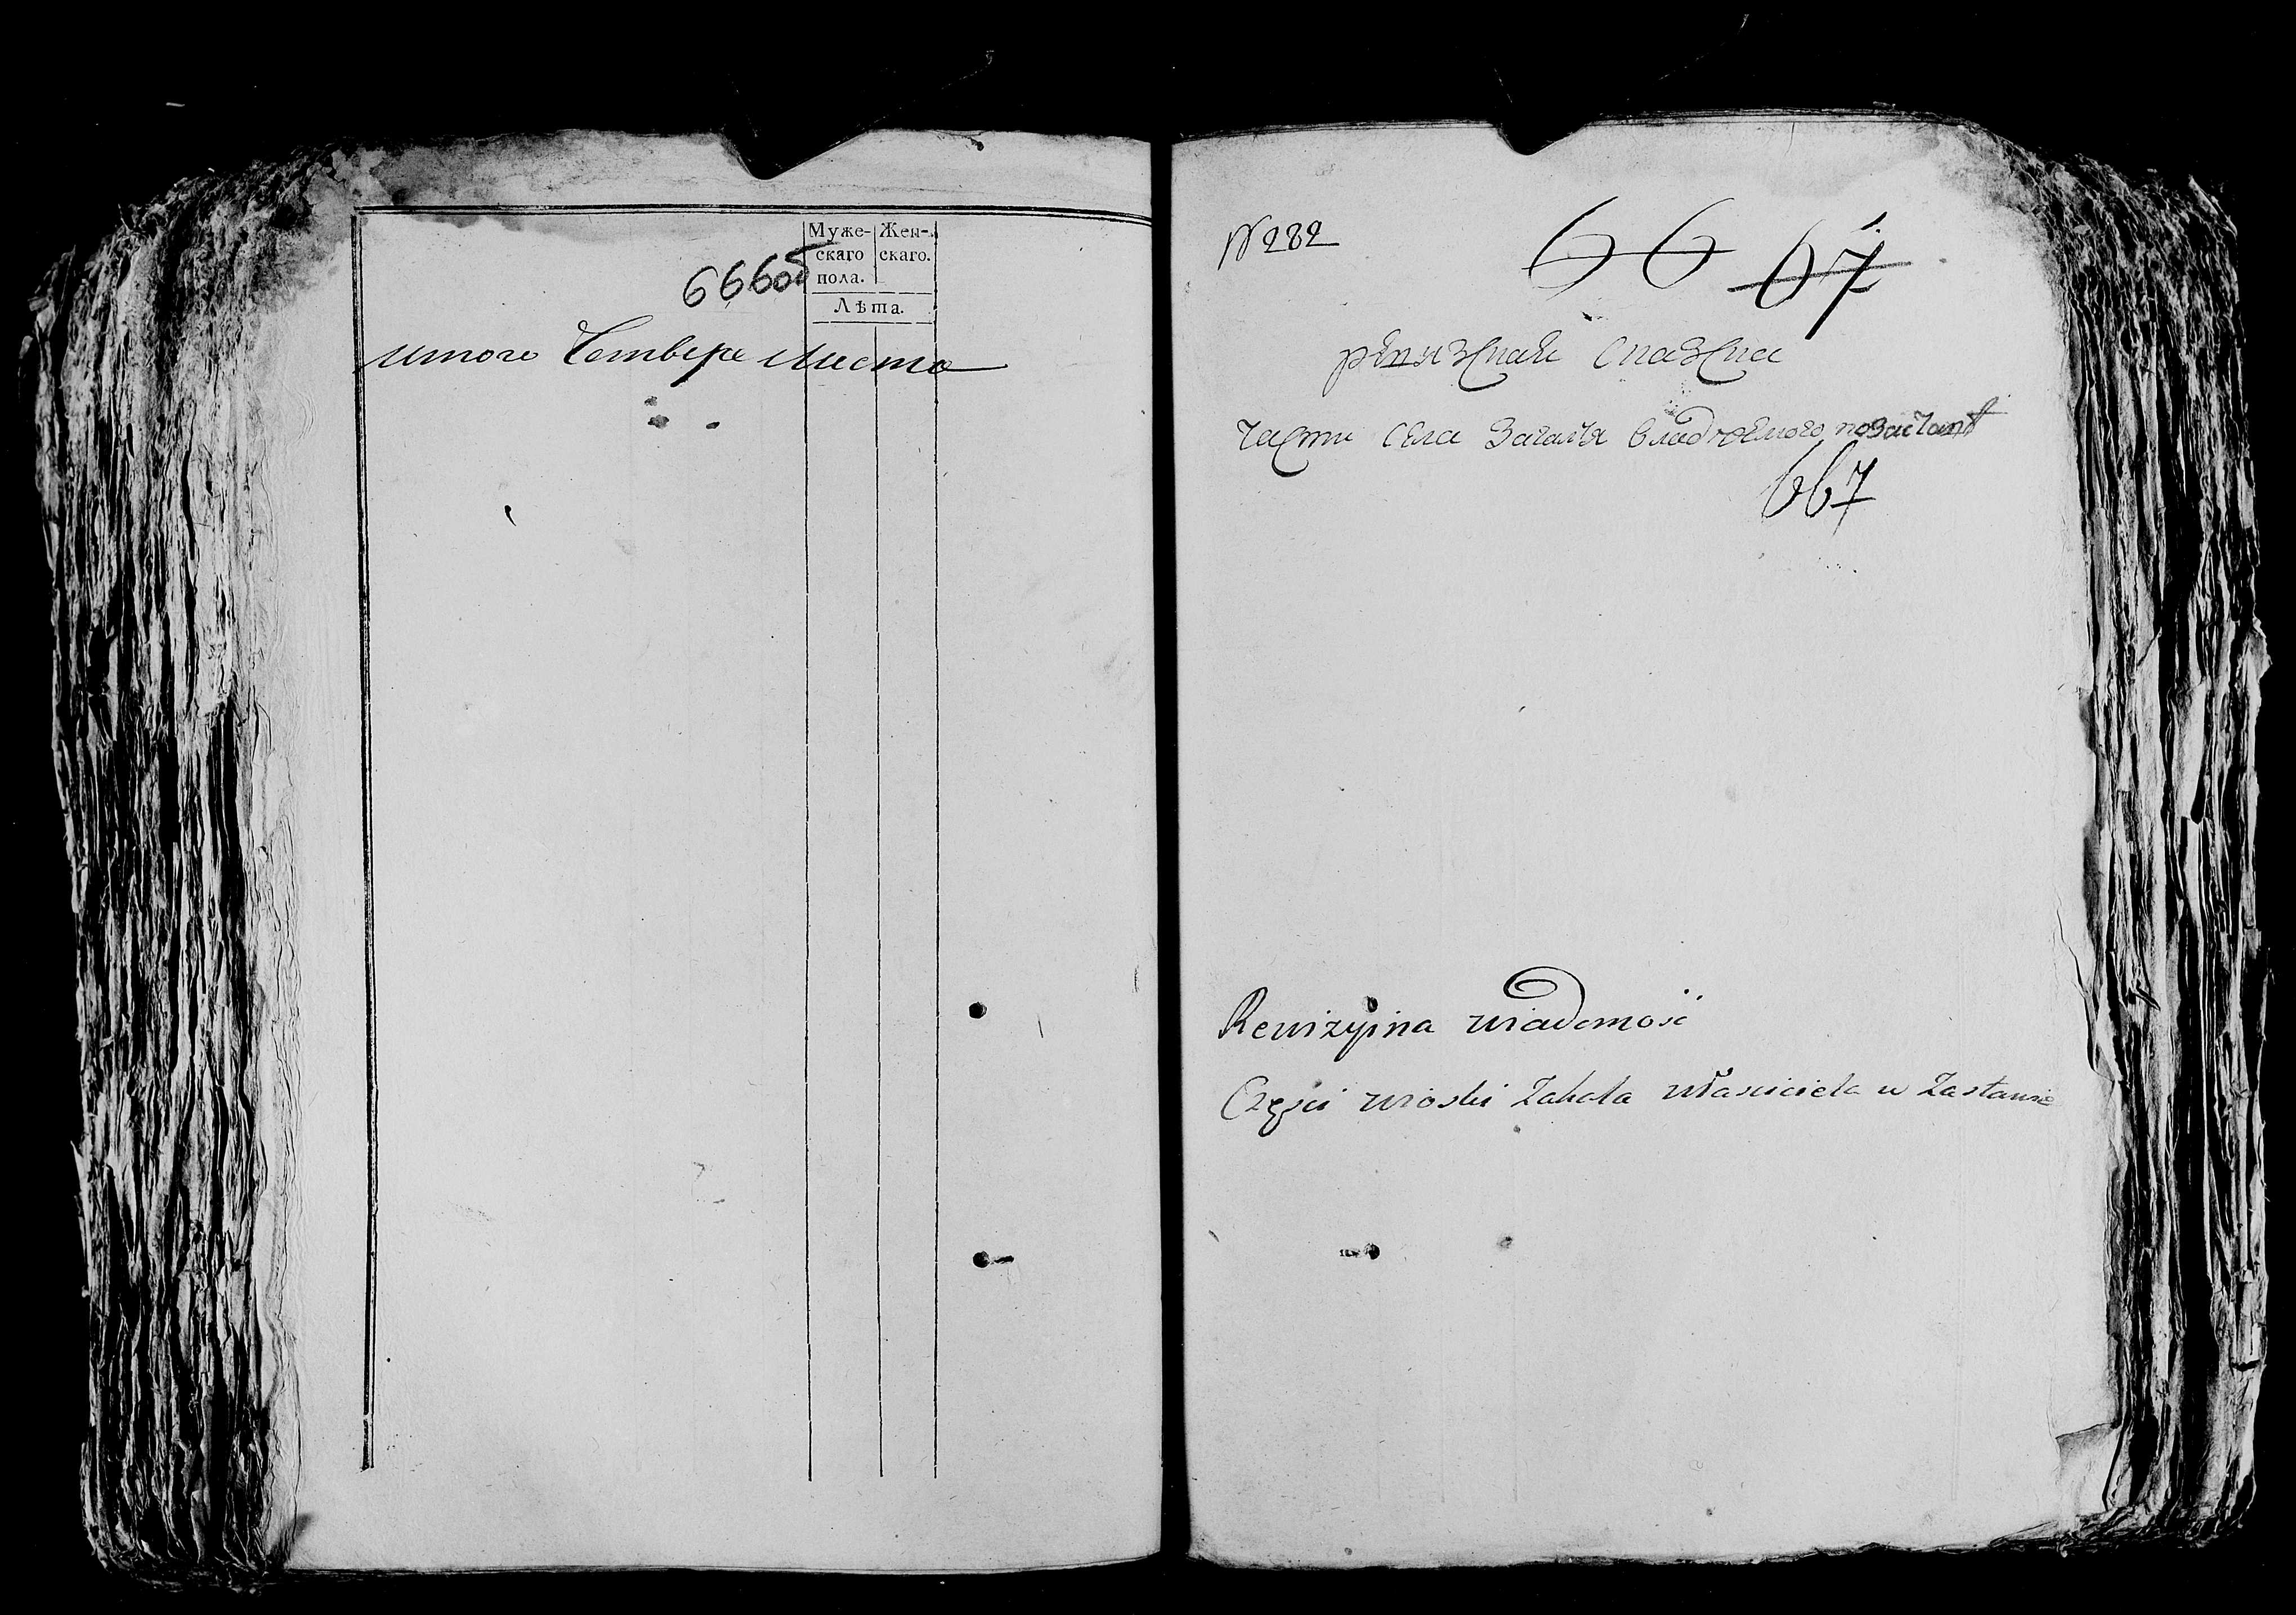 Муже- Жен-
скаго скаго.
пола.
Лѣта.
666об
итого Четыре листа
№ 282
66 67
ревизская сказка
части села Загаля владѣемого по заставѣ
667
Rewizyina wiadomość
Części wioski Zahala właściciela w Zastawie